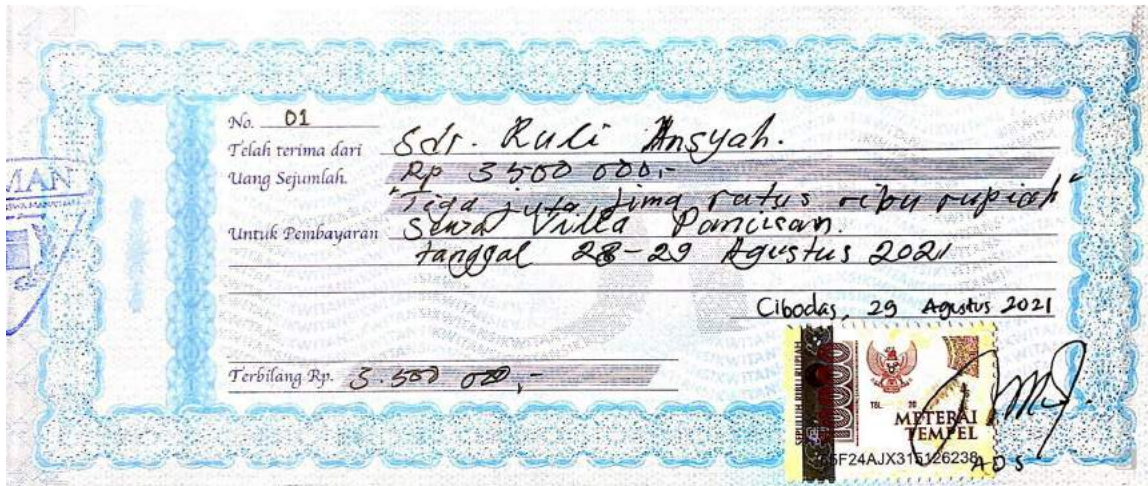 No. 01
Telah terima dari Sdr. Ruli Ansyah.
Uang Sejumlah. Rp 3500 000,-
"Tiga juta lima ratus ribu rupiah"
Untuk Pembayaran Sewa Villa
tanggal 28-29 Agustus 2021
Cibodas, 29 Agustus 2021
Terbilang Rp. 3.500 000,-
SEPULUH RIBU RUPIAH
10000
TGL. 20
METERAI
TEMPEL
F24AJX315126238
ADS
MAN